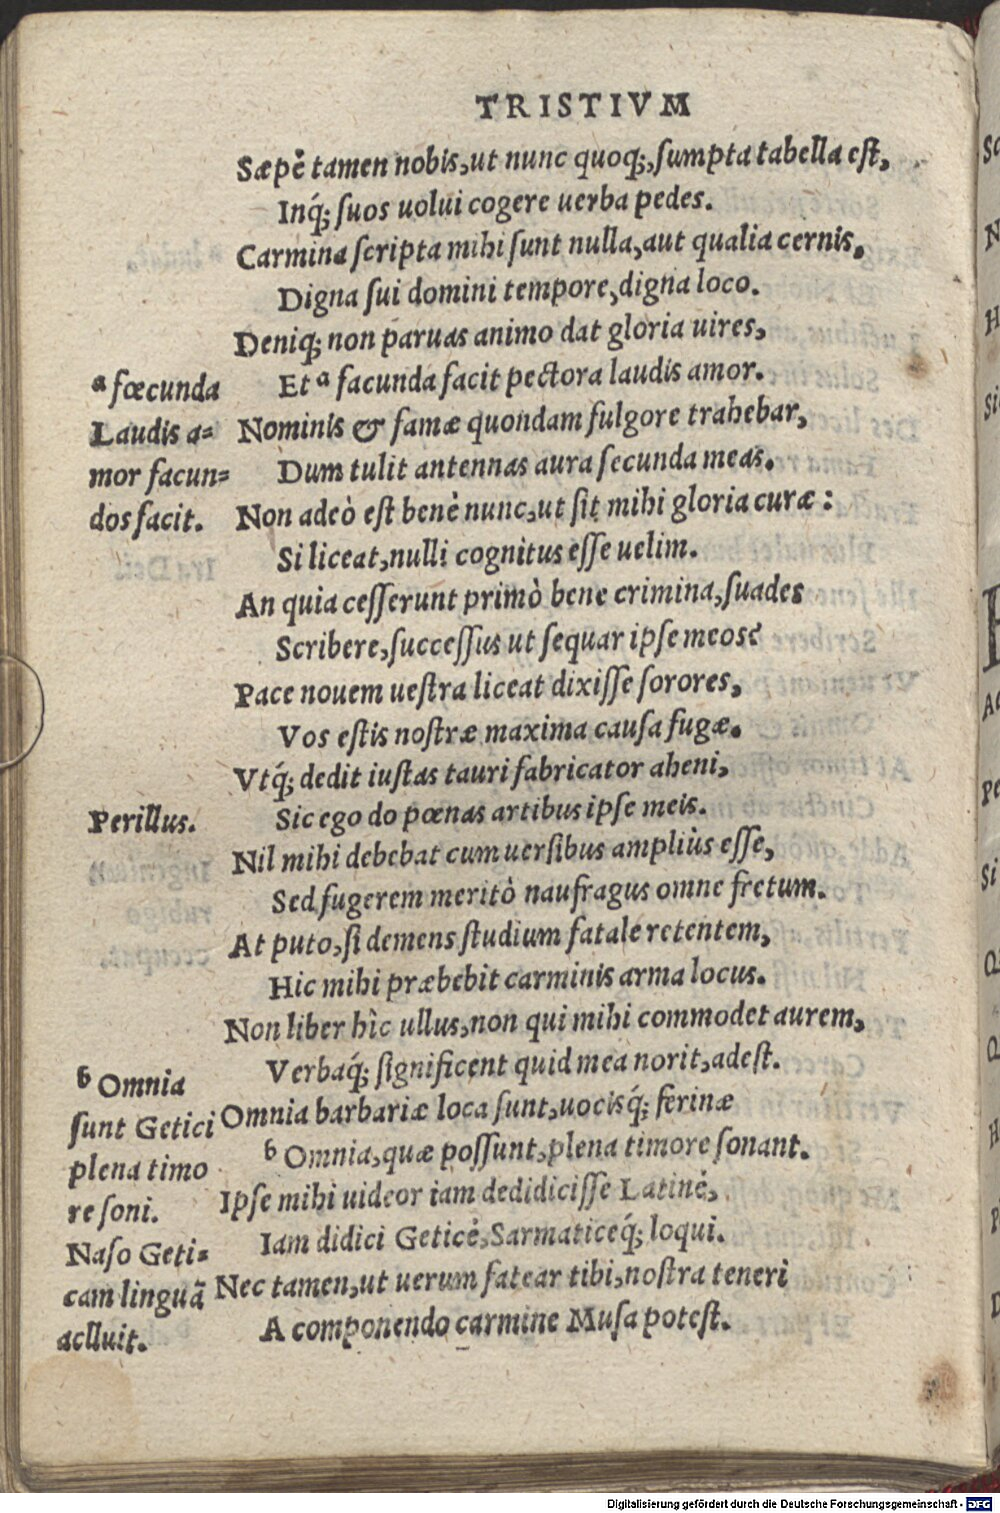 TRISTIVM
Sæpè tamen nobis, ut nunc quoq;, sumpta tabella est,
Inq́; suos uolui cogere uerba pedes.
Carmina scripta mihi sunt nulla, aut qualia cernis,
Digna sui domini tempore, digna loco.
Deniq; non paruas animo dat gloria uires,
Et ᵃ facunda facit pectora laudis amor.
Nominis & famæ quondam fulgore trahebar,
Dum tulit antennas aura secunda meas.
Non adeò est benè nunc, ut sit mihi gloria curæ:
Si liceat, nulli cognitus esse uelim.
An quia cesserunt primò bene crimina, suades
Scribere, successus ut sequar ipse meos?
Pace nouem uestra liceat dixisse sorores,
Vos estis nostræ maxima causa fugæ.
Vtq́; dedit iustas tauri fabricator aheni,
Sic ego do pœnas artibus ipse meis.
Nil mihi debebat cum uersibus ampliùs esse,
Sed fugerem meritò naufragus omne fretum.
At puto, si demens studium fatale retentem,
Hic mihi præbebit carminis arma locus.
Non liber hìc ullus, non qui mihi commodet aurem,
Verbaq́; significent quid mea norit, adest.
Omnia barbariæ loca sunt, uocisq́; ferinæ
ᵇ Omnia, quæ possunt, plena timore sonant.
Ipse mihi uideor iam dedidicisse Latinè,
Iam didici Geticè, Sarmaticeq́; loqui.
Nec tamen, ut uerum fatear tibi, nostra teneri
A componendo carmine Musa potest.
ᵃ fœcunda
Laudis a=
mor facun=
dos facit.
Perillus.
ᵇ Omnia
sunt Getici
plena timo
re soni.
Naso Geti=
cam linguã
aclluit.
Digitalisierung gefördert durch die Deutsche Forschungsgemeinschaft - DFG